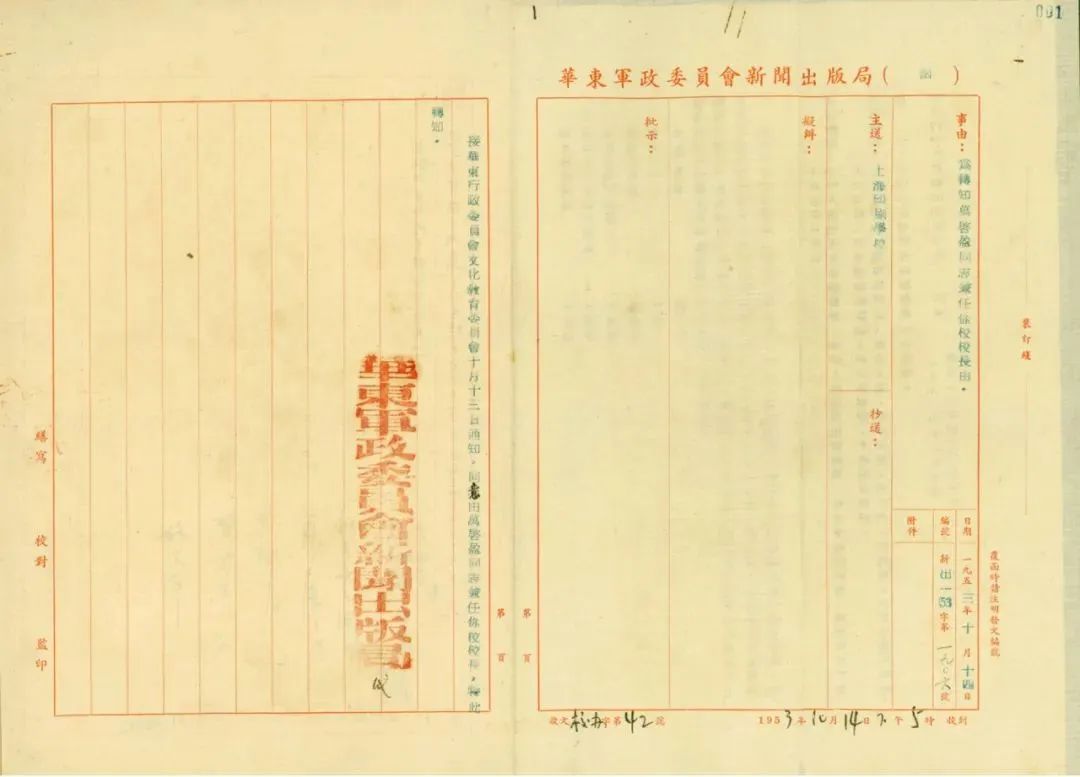 001
華東軍政委員會新聞出版局( 函 )
事由：為轉知萬啓盈同志兼任你校校長由。
主送：上海印刷學校
抄送：
擬辦：
批示：
日期 一九五三年十月十四日
編號 新(出)一53字第一九〇六號
附件
覆函時請註明發文編號
裝訂綫
收文校办字第42號
1953年10月14日下午5時收到
第 頁
第 頁
接華東行政委員會文化教育委員會十月十三日通知，同意由萬啓盈同志兼任你校校長，特此
轉知。
華東軍政委員會新聞出版局
繕寫
校對
監印